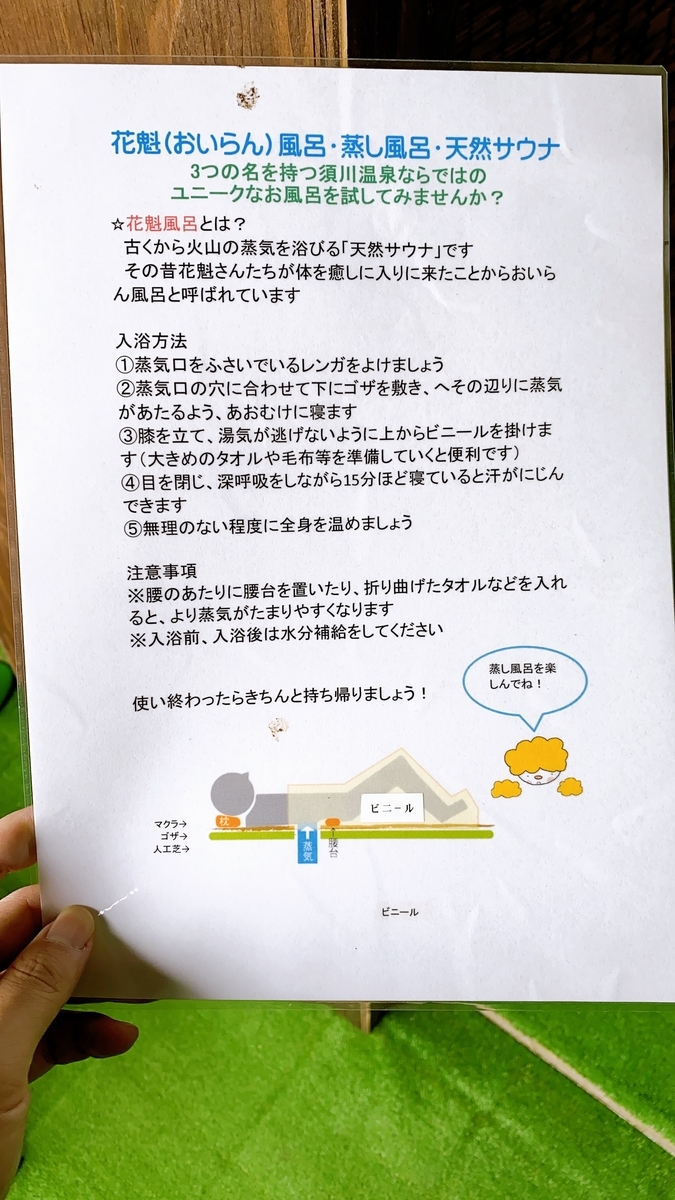 花魁(おいらん)風呂・蒸し風呂・天然サウナ
3つの名を持つ須川温泉ならではの
ユニークなお風呂を試してみませんか?
☆花魁風呂とは?
古くから火山の蒸気を浴びる「天然サウナ」です
その昔花魁さんたちが体を癒しに入りに来たことからおいら
ん風呂と呼ばれています
入浴方法
①蒸気口をふさいでいるレンガをよけましょう
②蒸気口の穴に合わせて下にゴザを敷き、へその辺りに蒸気
があたるよう、あおむけに寝ます
③膝を立て、湯気が逃げないように上からビニールを掛けま
す(大きめのタオルや毛布等を準備していくと便利です)
④目を閉じ、深呼吸をしながら15分ほど寝ていると汗がにじん
できます
⑤無理のない程度に全身を温めましょう
注意事項
※腰のあたりに腰台を置いたり、折り曲げたタオルなどを入れ
ると、より蒸気がたまりやすくなります
※入浴前、入浴後は水分補給をしてください
蒸し風呂を楽
しんでね!
使い終わったらきちんと持ち帰りましょう!
ビニール
枕
マクラ→
ゴザ→
人工芝→
↑蒸気
↑腰台
ビニール